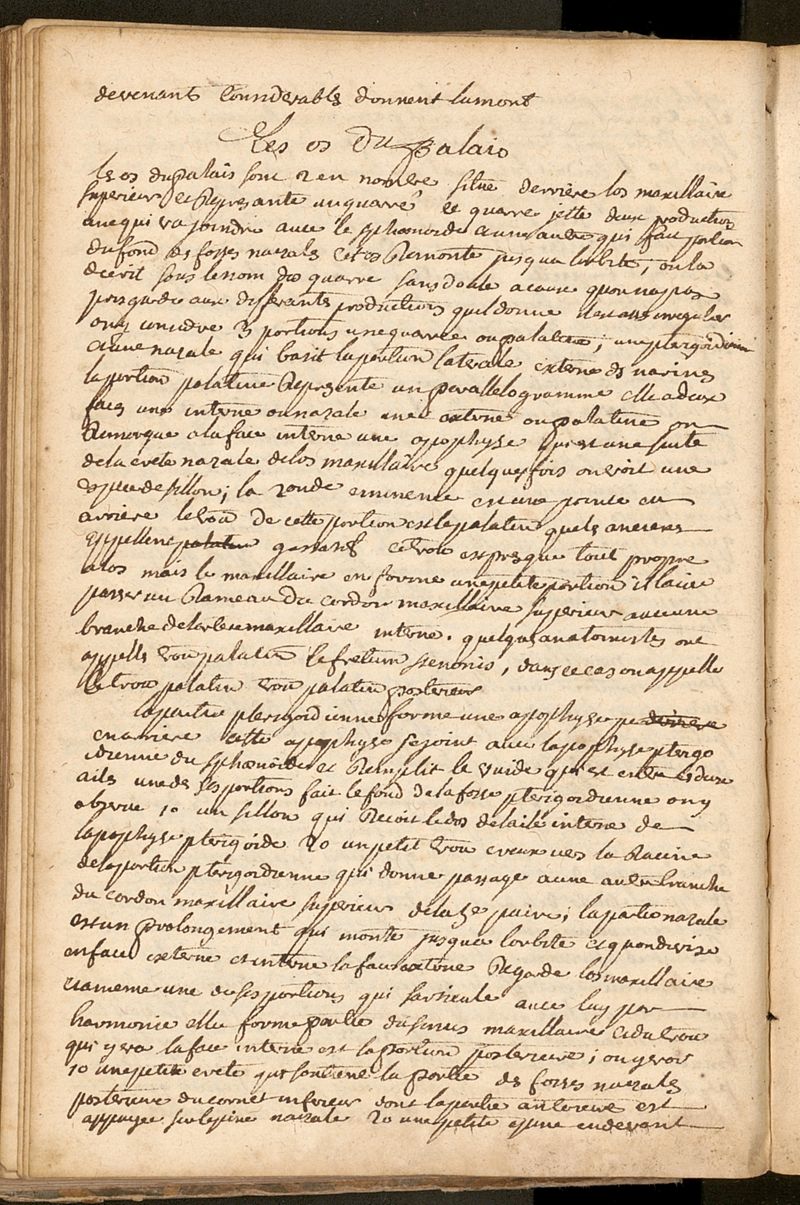 devenants Considerables donnent la mort
Les os du palais
les os du palais sont 2 en nombre situé derriere los maxillaire
superieur et Represante un quarré ce quarré jette deux production
une qui va joindre avec le sphœnoide a une autre qui fait portion
du fond des fosses nazales cet os Remonte jusqua lorbite, on la
decrit sous le nom dos quarré sans doute a cause quon na pas
pris garde aux differants productions quil donne irregulier
on y considere 3 portions une quarrée ou palatine, une pterigoidienne
et une nazale qui la portion laterale externe des narines
la portion palatine Represente un parallelogramme elle a deux
faces une interne ou nazale une externe ou palatine on
Remarque a la face interne une apophyse qui est une suite
de la crete nazale de los maxillaire quelques fois on voit une
espece de sillon; la 2onde eminence est une pointe en
arriere le trou de cette portion est le palatin que les anciens
appellent palatin gustatif ce trou est presque tout propre
a los mais le maxillaire en forme une petite portion il laisse
passer un Rameau du cordon maxillaire superieur avec une
branche de lartere maxillaire interne. quelques anatomistes ont
appellé trou palatin le fretum stenonis, dans ce cas on appelle
le trou palatin trou palatin posterieur
la partie pterigoidienne forme une apophyse
en arriere cette apophyse se joint avec lapophyse pterigo
idienne du sphœnoide et Remplit le vuide qui est entre les deux
ailes une de ses portions fait le fond de la fosse pterigoidienne on y
observe 1o un sillon qui Recoit le dos de laile interne de
lapophyse pterigoide 2o un petit trou creux vers la Racine
de la portion pterigoidienne qui donne passage a une autre branche
du cordon maxillaire superieur de la 5e paire; la partie nazale
est un prolongement qui monte jusqua lorbite et quon divise
en face externe et interne la face externe Regarde los maxillaire
et a meme une de ses portions qui sarticule avec luy par
harmonie elle forme partie du sinus maxillaire et du trou
qui y va la face interne est la portion posterieure; on y voit
1o une petite crete qui soutient la partie des fosses nazales
posterieure du cornet inferieur dont la partie anterieure est
appuyée sur lepine nazale 2o une petite epine en devant